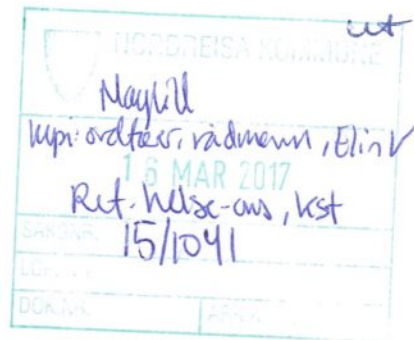 ut
NORDREISA KOMMUNE
Maylill
kopi: ordfører, rådmann, Elin V
16 MAR 2017
Ref. helse-oms, kst
15/1041
SAKSNR.
DOK.NR.